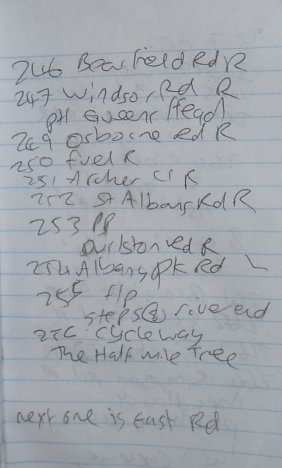 246 Bearfield Rd R
247 Windsor Rd R
pH Queens Head
249 Osborne Rd R
250 fuel R
251 Archer Cl R
252 St Albans Rd R
253 PP
Durlston Rd R
254 Albany Pk Rd L
255 f/p
steps river end
256 cycleway
The Half mile Tree
next one is East Rd